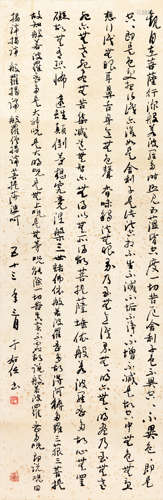 觀自在菩薩行深般若波羅蜜多時照見五蘊皆空度一切苦厄舍利子色不異空空不異色色即是
空空即是色受想行識亦復如是舍利子是諸法空相不生不滅不垢不淨不增不減是故空中無色無受
想行識無眼耳鼻舌身意無色聲香味觸法無眼界乃至無意識界無無明亦無無明盡乃至無老
死亦無老死盡無苦集滅道無智亦無得以無所得故菩提薩埵依般若波羅蜜多故心無罣
礙無罣礙故無有恐怖遠離顛倒夢想究竟涅槃三世諸佛依般若波羅蜜多故得阿耨多羅三藐三菩提
故知般若波羅蜜多是大神咒是大明咒是無上咒是無等等咒能除一切苦真實不虛故說般若波羅蜜多咒即說咒曰
揭諦揭諦般羅揭諦般羅僧揭諦菩提薩婆訶 五十三年三月 于右任書